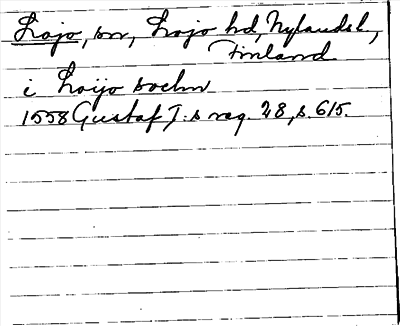 Lojo, sn, Lojo hd, Nylandsl.,
Finland
i Loijo sochn
1558 Gustaf I:s reg. 28, s. 615.